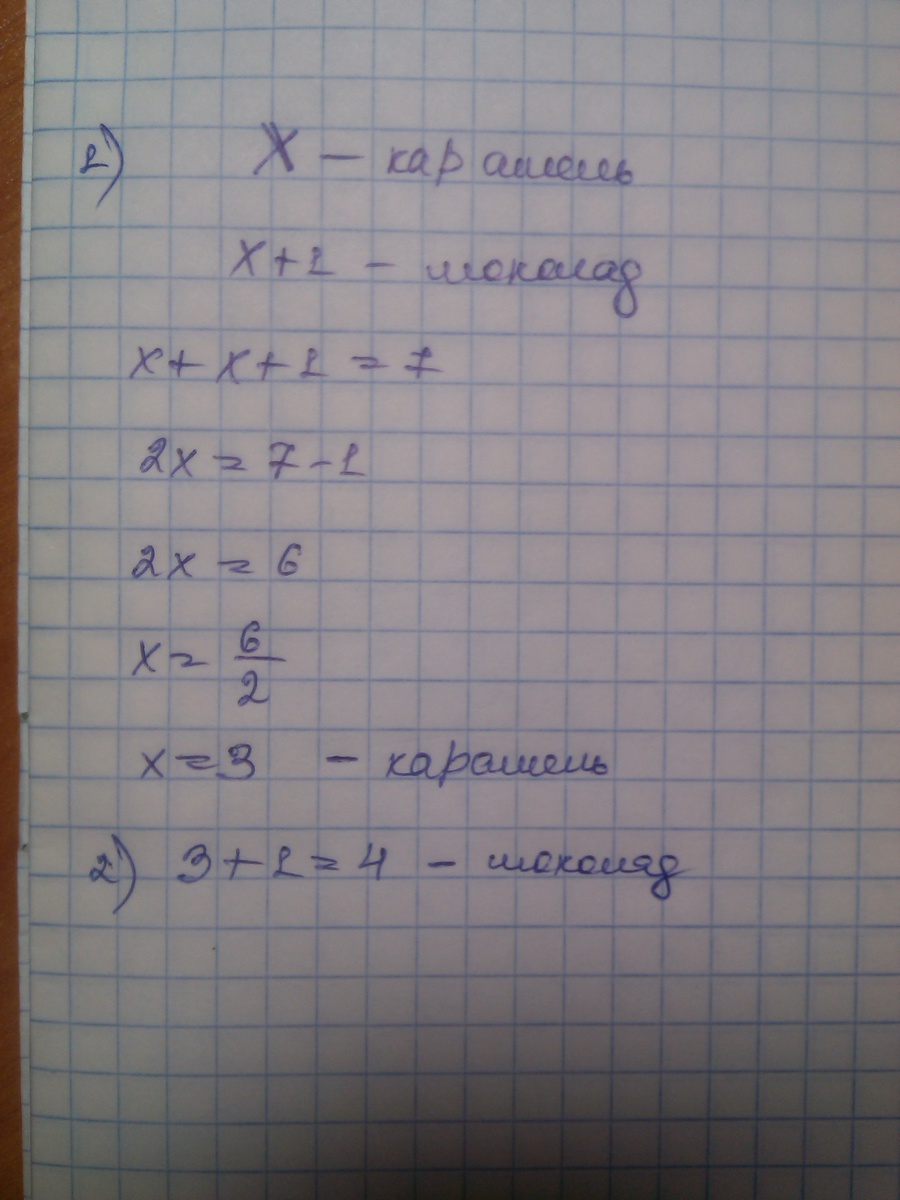 1) X – карамель
x+1 – шоколад
x+x+1=7
2x=7-1
2x=6
x=6/2
x=3 – карамель
2) 3+1=4 – шоколад